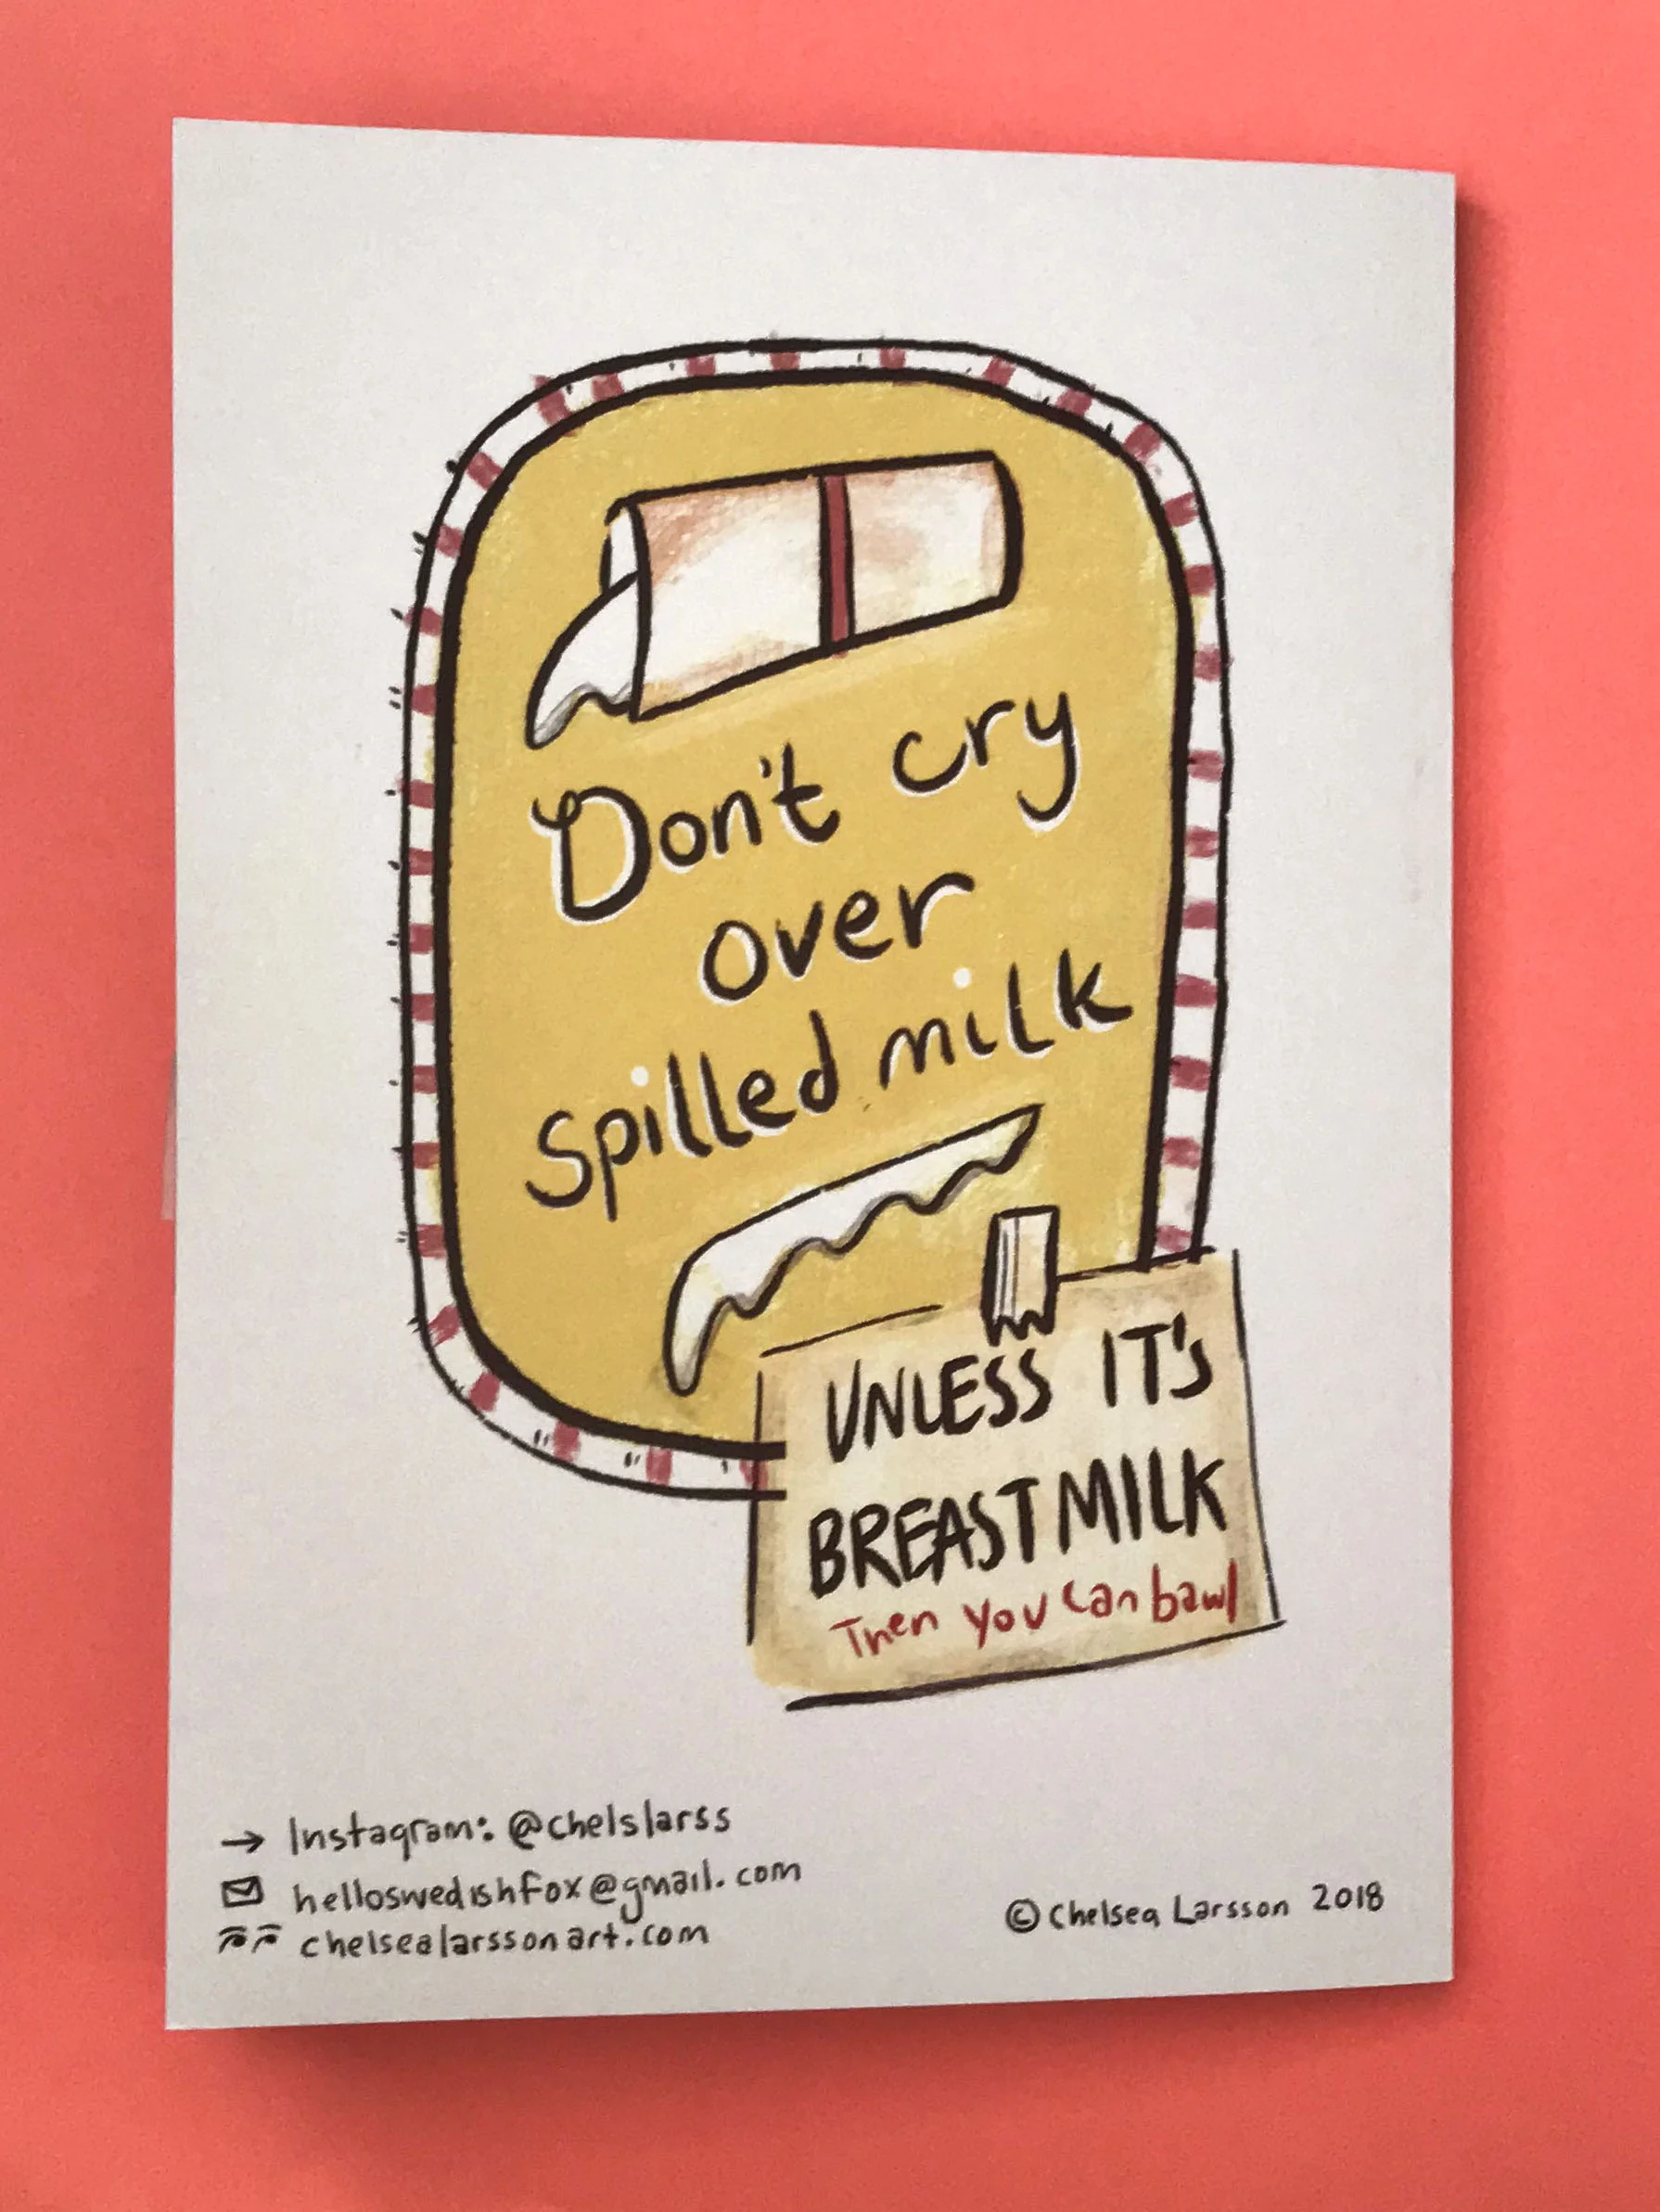 Don't cry
over
spilled milk
UNLESS IT's
BREAST MILK
Then you can bawl
→ Instagram: @chelslarss
helloswedishfox@gmail.com
chelsealarssonart.com
© Chelsea Larsson 2018